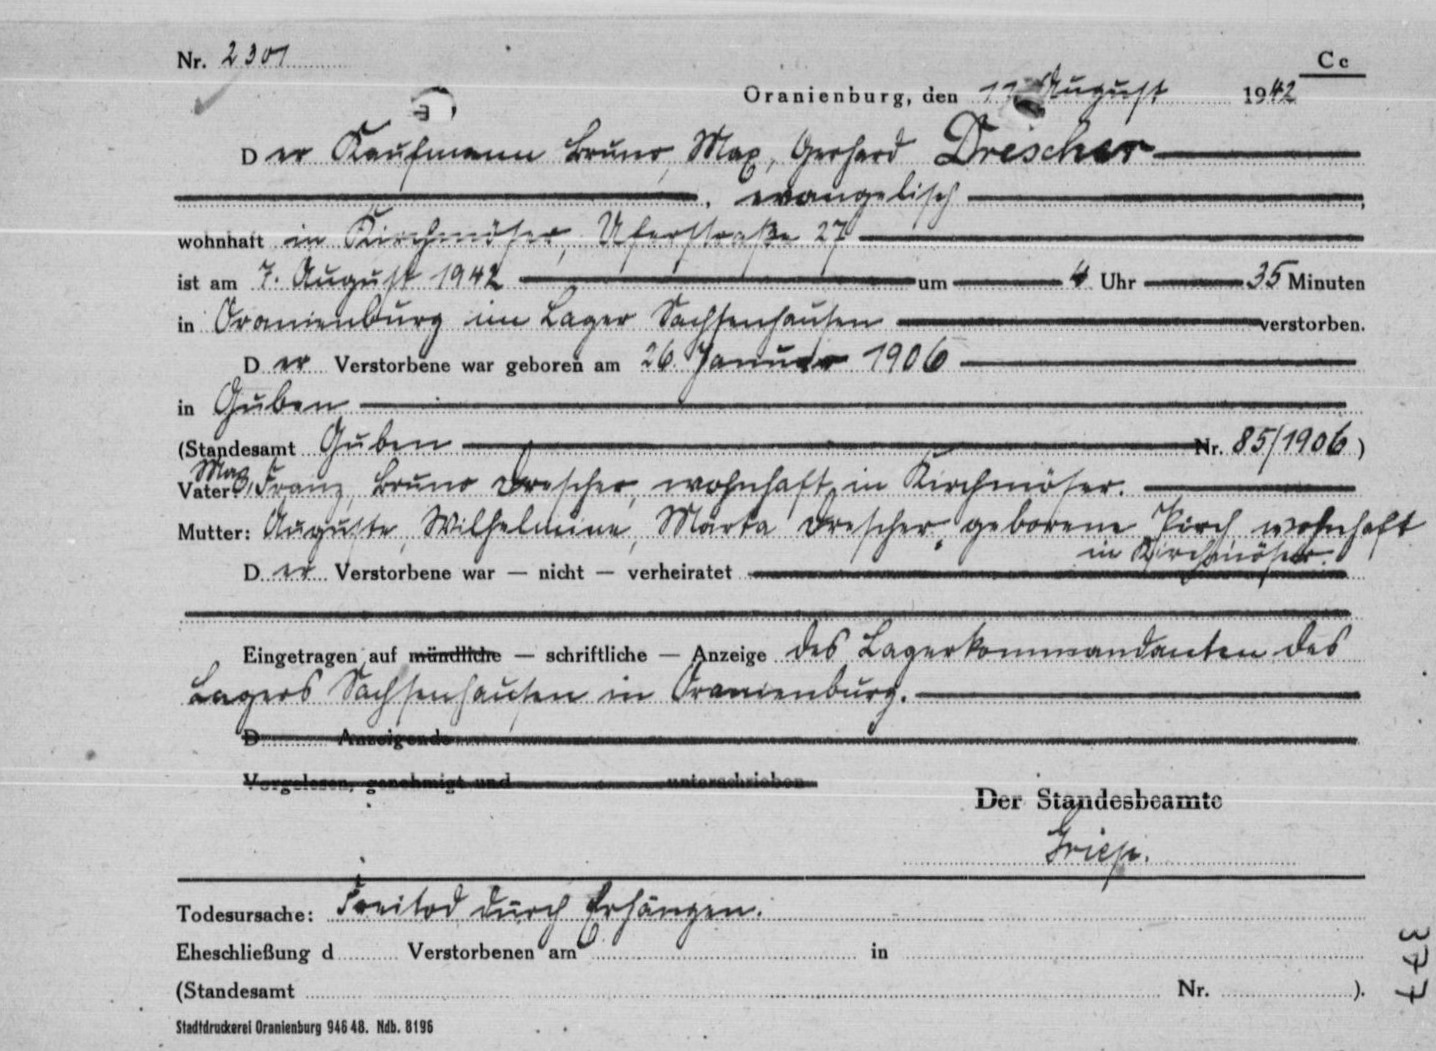 Nr. 2301
Cc
Oranienburg, den 11. August 1942
Der Kaufmann Bruno, Max, Gerhard Drescher
, evangelisch ,
wohnhaft in Kirchmöser, Uferstraße 27
ist am 7. August 1942 um 4 Uhr 35 Minuten
in Oranienburg im Lager Sachsenhausen verstorben.
Der Verstorbene war geboren am 26. Januar 1906
in Guben
(Standesamt Guben Nr. 85/1906)
Vater: Max, Franz, Bruno Drescher, wohnhaft in Kirchmöser.
Mutter: Auguste, Wilhelmine, Marta Drescher, geborene Pirch, wohnhaft
in Kirchmöser.
Der Verstorbene war — nicht — verheiratet
Eingetragen auf mündliche — schriftliche — Anzeige des Lagerkommandanten des
Lagers Sachsenhausen in Oranienburg.
D Anzeigende
Vorgelesen, genehmigt und unterschrieben
Der Standesbeamte
Todesursache: Freitod durch Erhängen.
Eheschließung d Verstorbenen am in
(Standesamt Nr. ).
Stadtdruckerei Oranienburg 946 48. Ndb. 8196
377